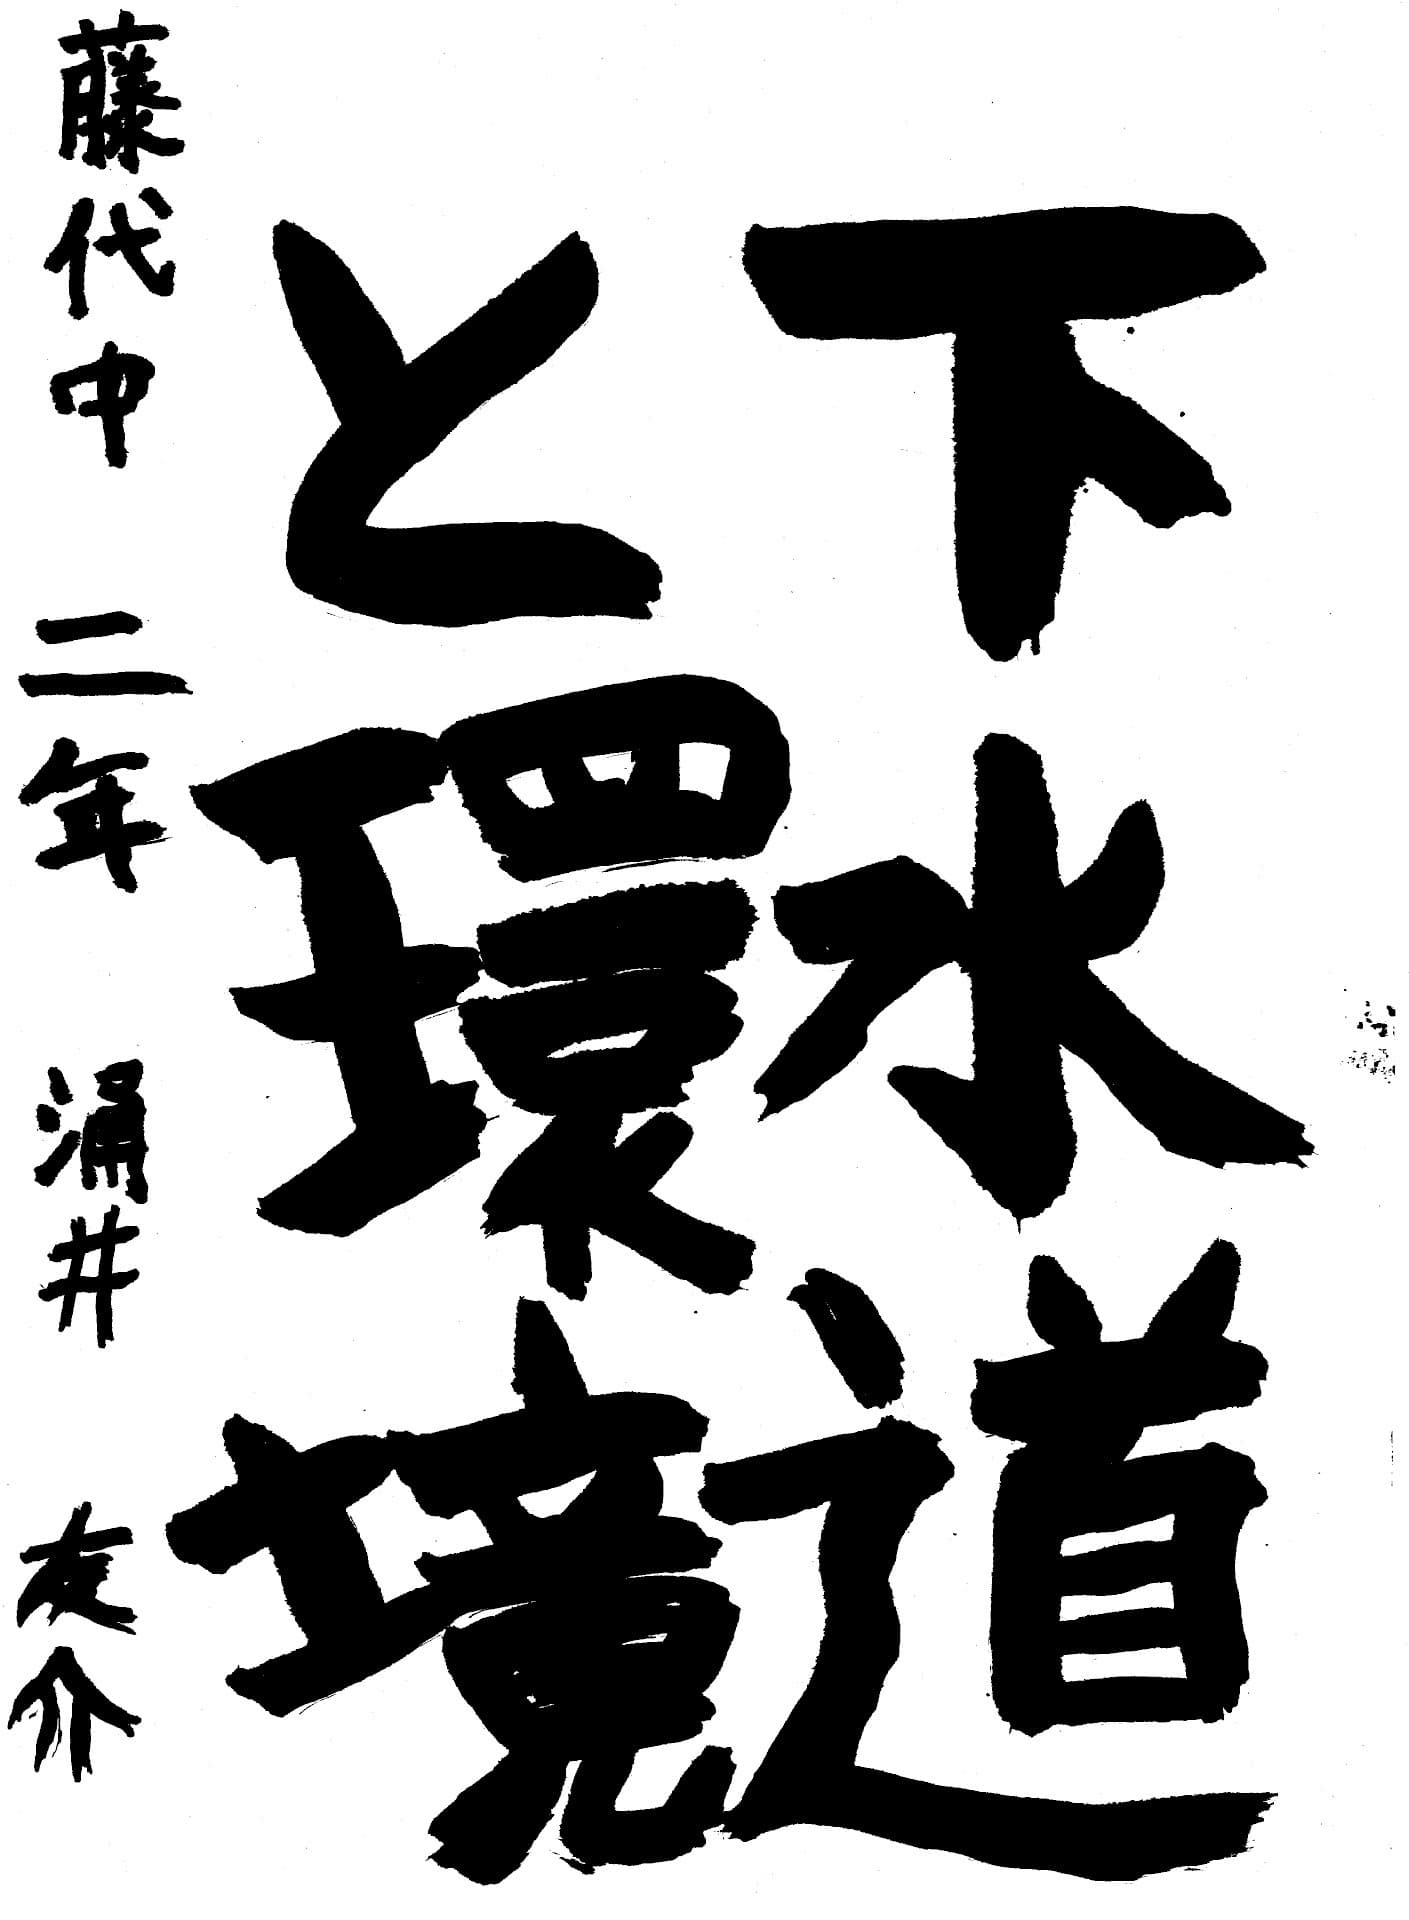 下水道
と環境
藤代中 二年 涌井 友介